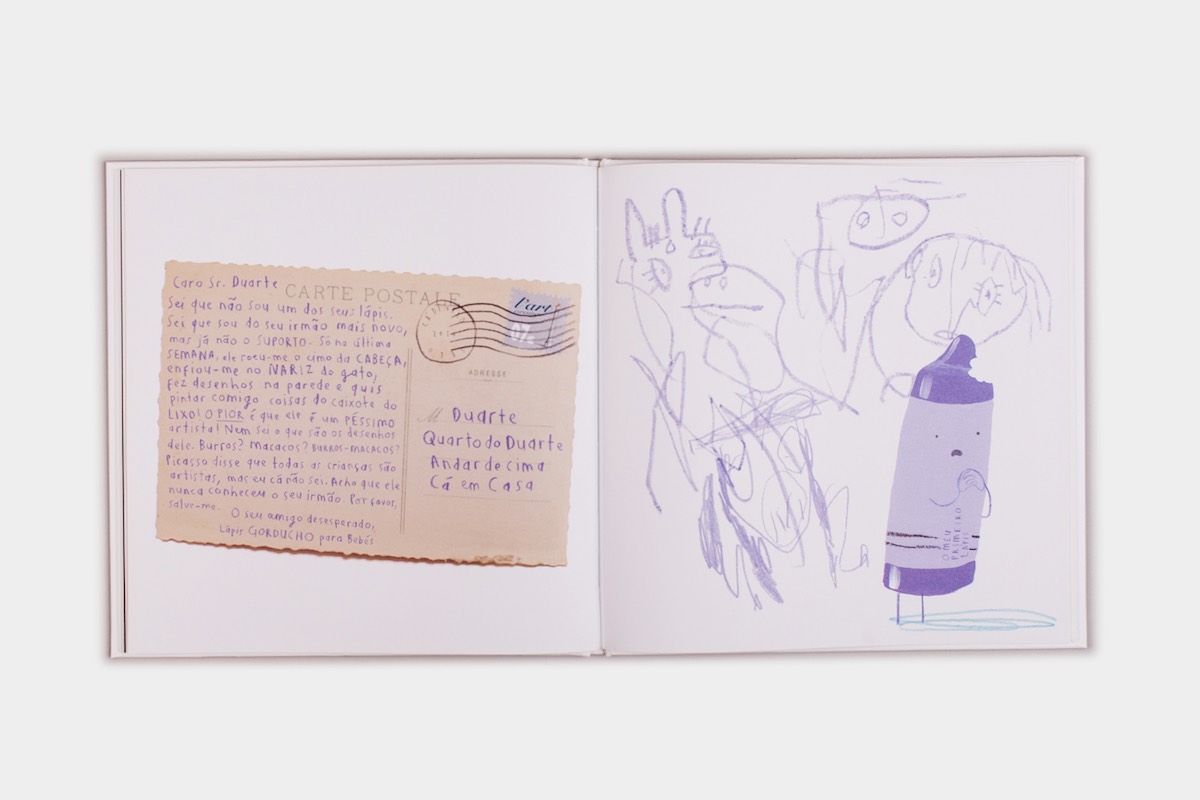 Caro Sr. Duarte
CARTE POSTALE
Sei que não sou um dos seus lápis.
Sei que sou do seu irmão mais novo,
mas já não o SUPORTO. Só na última
SEMANA, ele roeu-me o cimo da CABEÇA,
enfiou-me no NARIZ do gato,
fez desenhos na parede e quis
pintar comigo coisas do caixote do
LIXO! O PIOR é que ele é um PÉSSIMO
artista! Nem sei o que são os desenhos
dele. Burros? Macacos? BURROS-MACACOS?
Picasso disse que todas as crianças são
artistas, mas eu cá não sei. Acho que ele
nunca conheceu o seu irmão. Por favor,
salve-me.
O seu amigo desesperado,
Lápis GORDUCHO para Bebés
l'art
ADRESSE
M Duarte
Quarto do Duarte
Andar de cima
Cá em Casa
O MEU
PRIMEIRO
LÁPIS